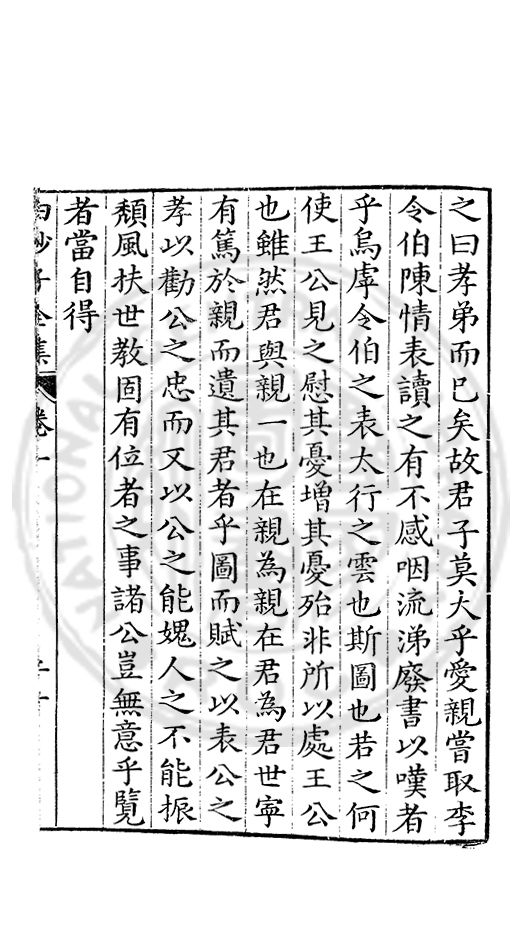 之曰孝弟而已矣故君子莫大乎愛親嘗取李
令伯陳情表讀之有不感咽流涕廢書以嘆者
乎烏虖令伯之表太行之雲也斯圖也若之何
使王公見之慰其憂增其憂殆非所以處王公
也雖然君與親一也在親為親在君為君世寧
有篤於親而遺其君者乎圖而賦之以表公之
孝以勸公之忠而又以公之能媿人之不能振
頽風扶世教固有位者之事諸公豈無意乎覽
者當自得
白沙子全集 卷一
NATIONAL